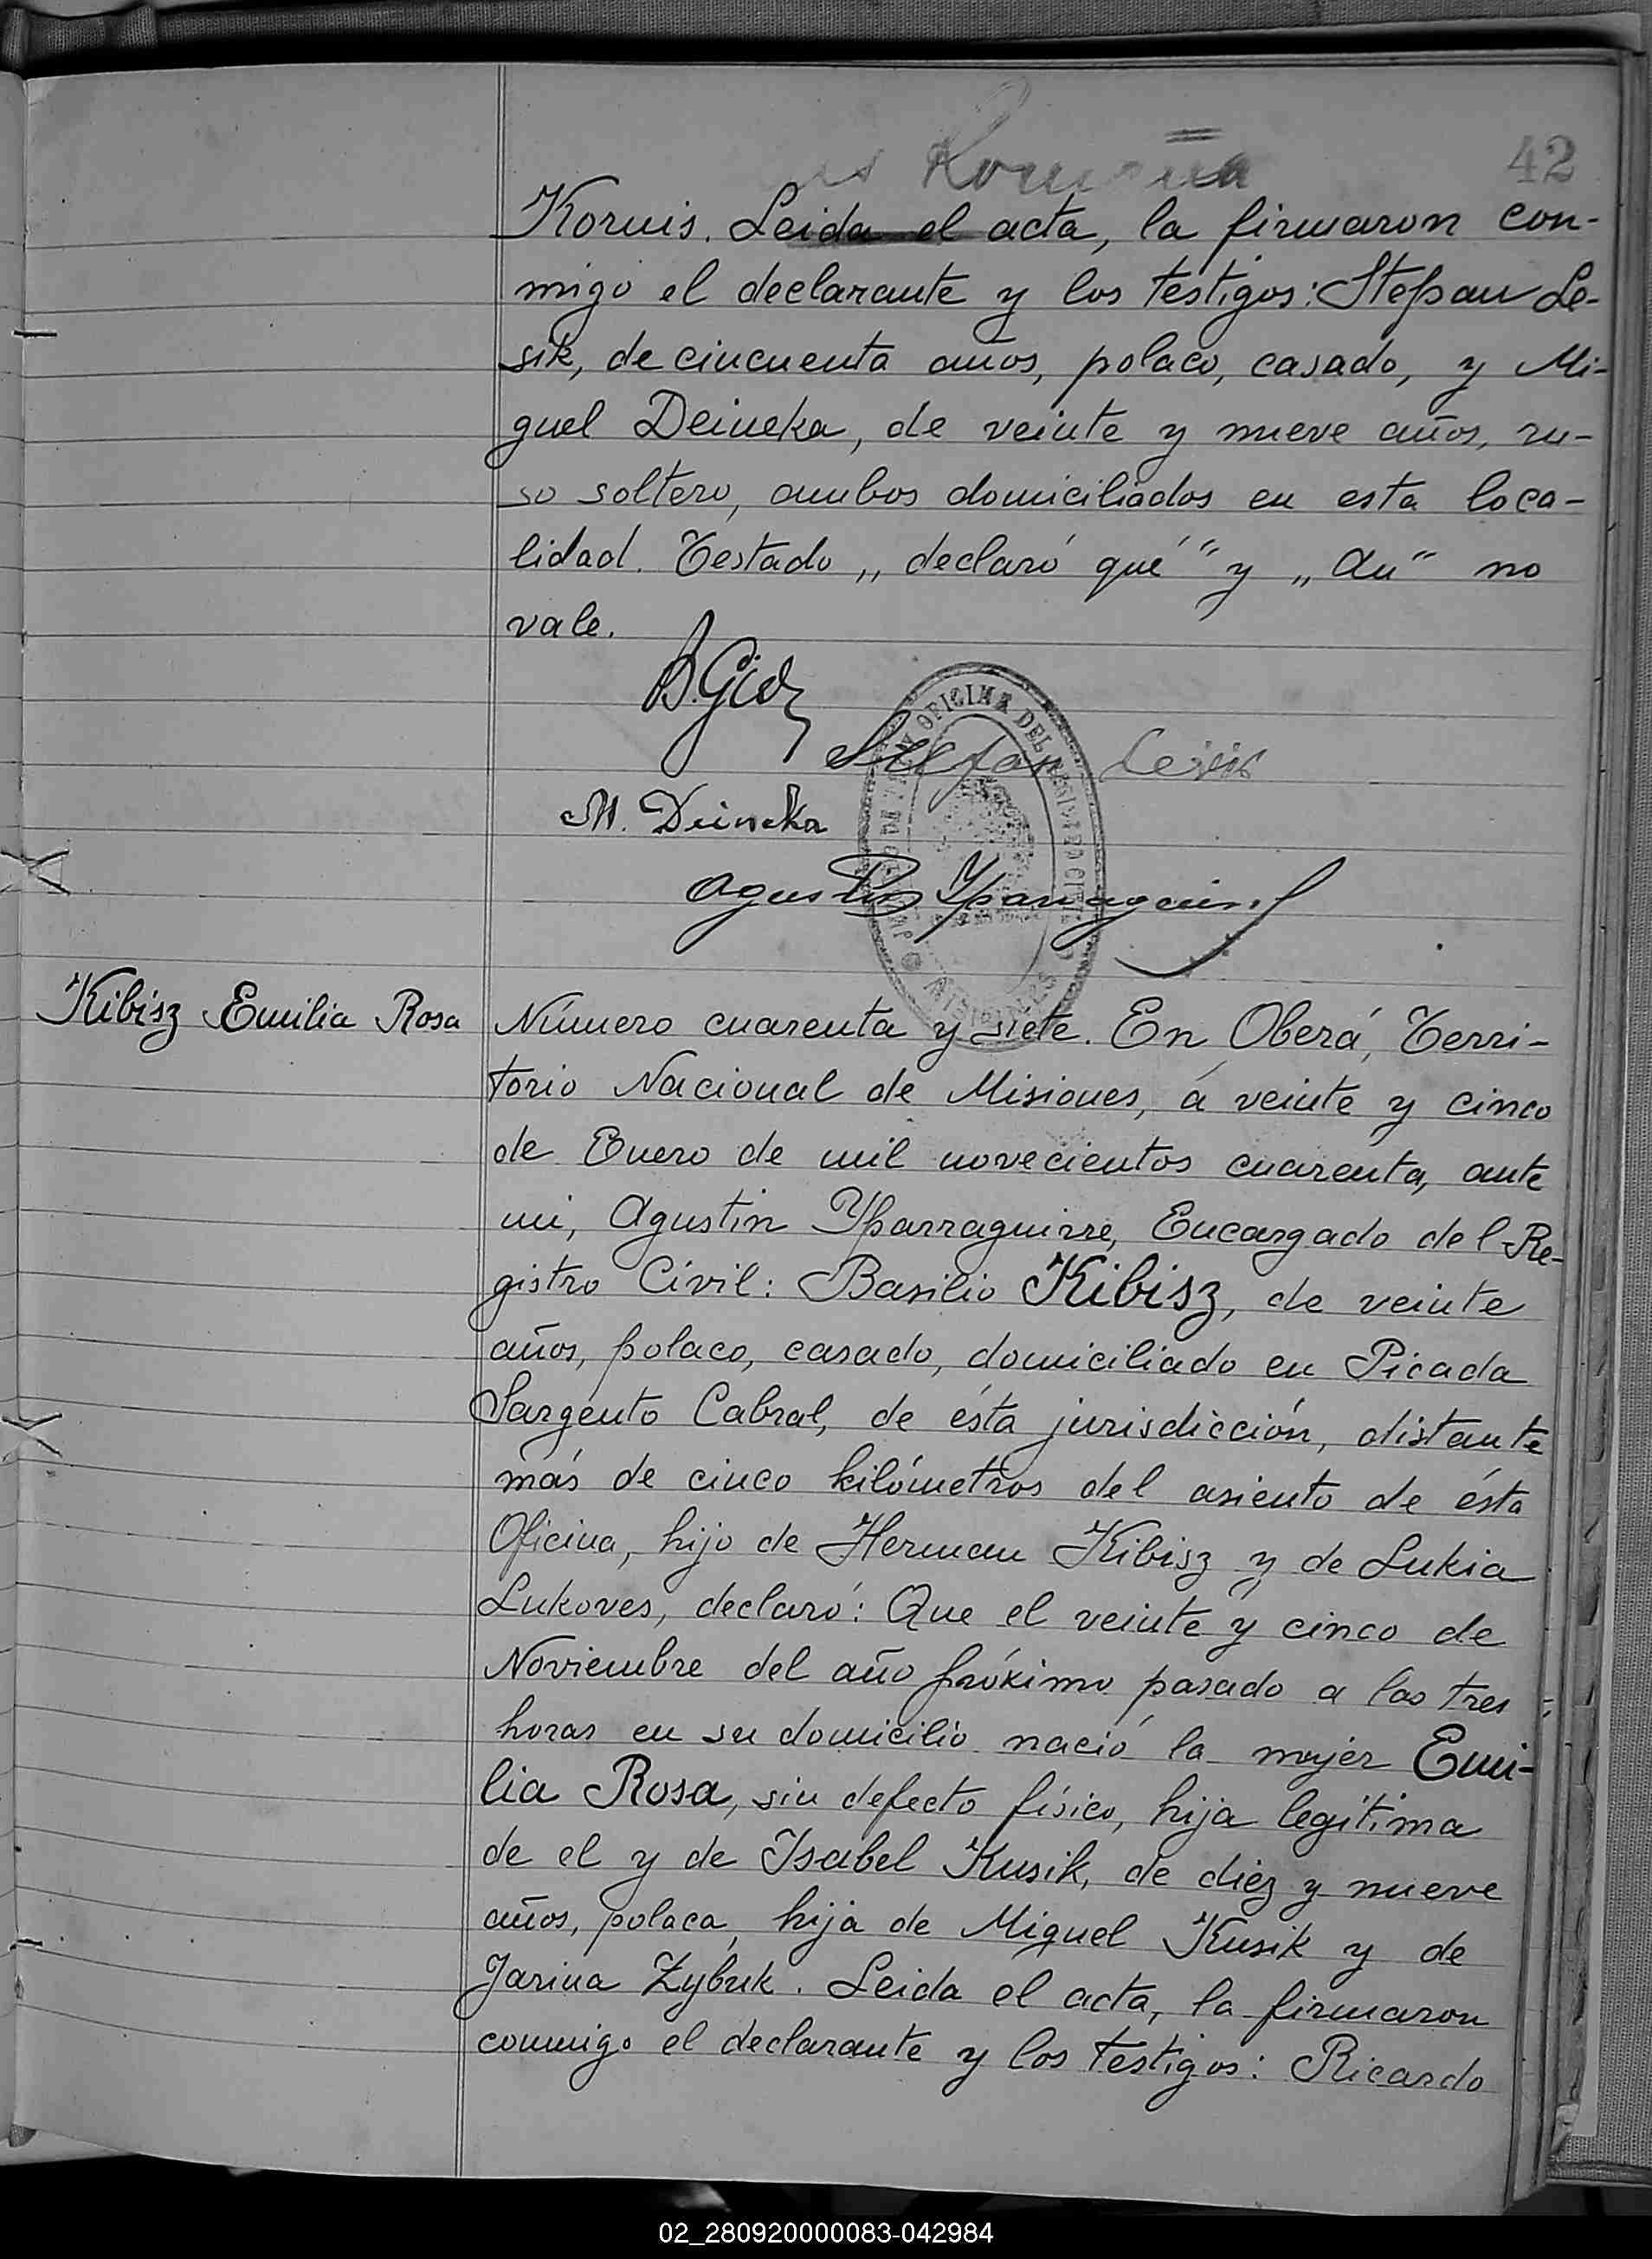 42
Koruis. Leida el acta, la firmaron con-
migo el declarante y los testigos: Stepan Le-
sik, de cincuenta años, polaco, casado, y Mi-
guel Deineka, de veinte y nueve años, ru-
so soltero, ambos domiciliados en esta loca-
lidad. Testado „declaró que" y „au" no
vale.
Stefan
M. Deineka
Agustin Yparraguirre
OFICINA DEL
Kibisz Emilia Rosa
Número cuarenta y siete. En Oberá, Terri-
torio Nacional de Misiones, á veinte y cinco
de Enero de mil novecientos cuarenta, ante
mi, Agustin Yparraguirre, Encargado del Re-
gistro Civil: Basilio Kibisz, de veinte
años, polaco, casado, domiciliado en Picada
Sargento Cabral, de ésta jurisdicción, distante
más de cinco kilómetros del asiento de ésta
Oficina, hijo de Herman Kibisz y de Lukia
Lukoves, declaró: Que el veinte y cinco de
Noviembre del año próximo pasado a las tres
horas en su domicilio nació la mujer Emi-
lia Rosa, sin defecto físico, hija legítima
de el y de Isabel Kusik, de diez y nueve
años, polaca, hija de Miguel Kusik y de
Jarina Zybuk. Leida el acta, la firmaron
conmigo el declarante y los testigos: Ricardo
02_280920000083-042984